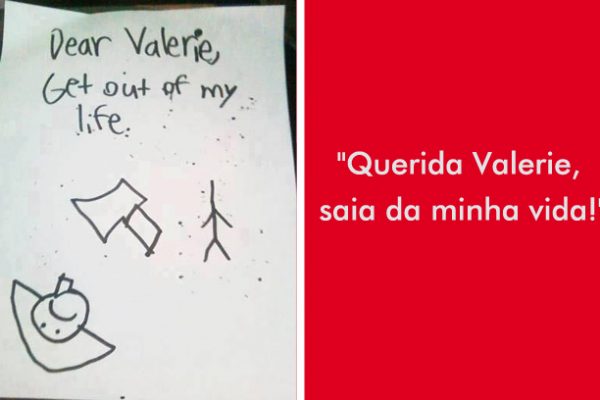 Dear Valerie,
Get out of my
life.
"Querida Valerie,
saia da minha vida!"